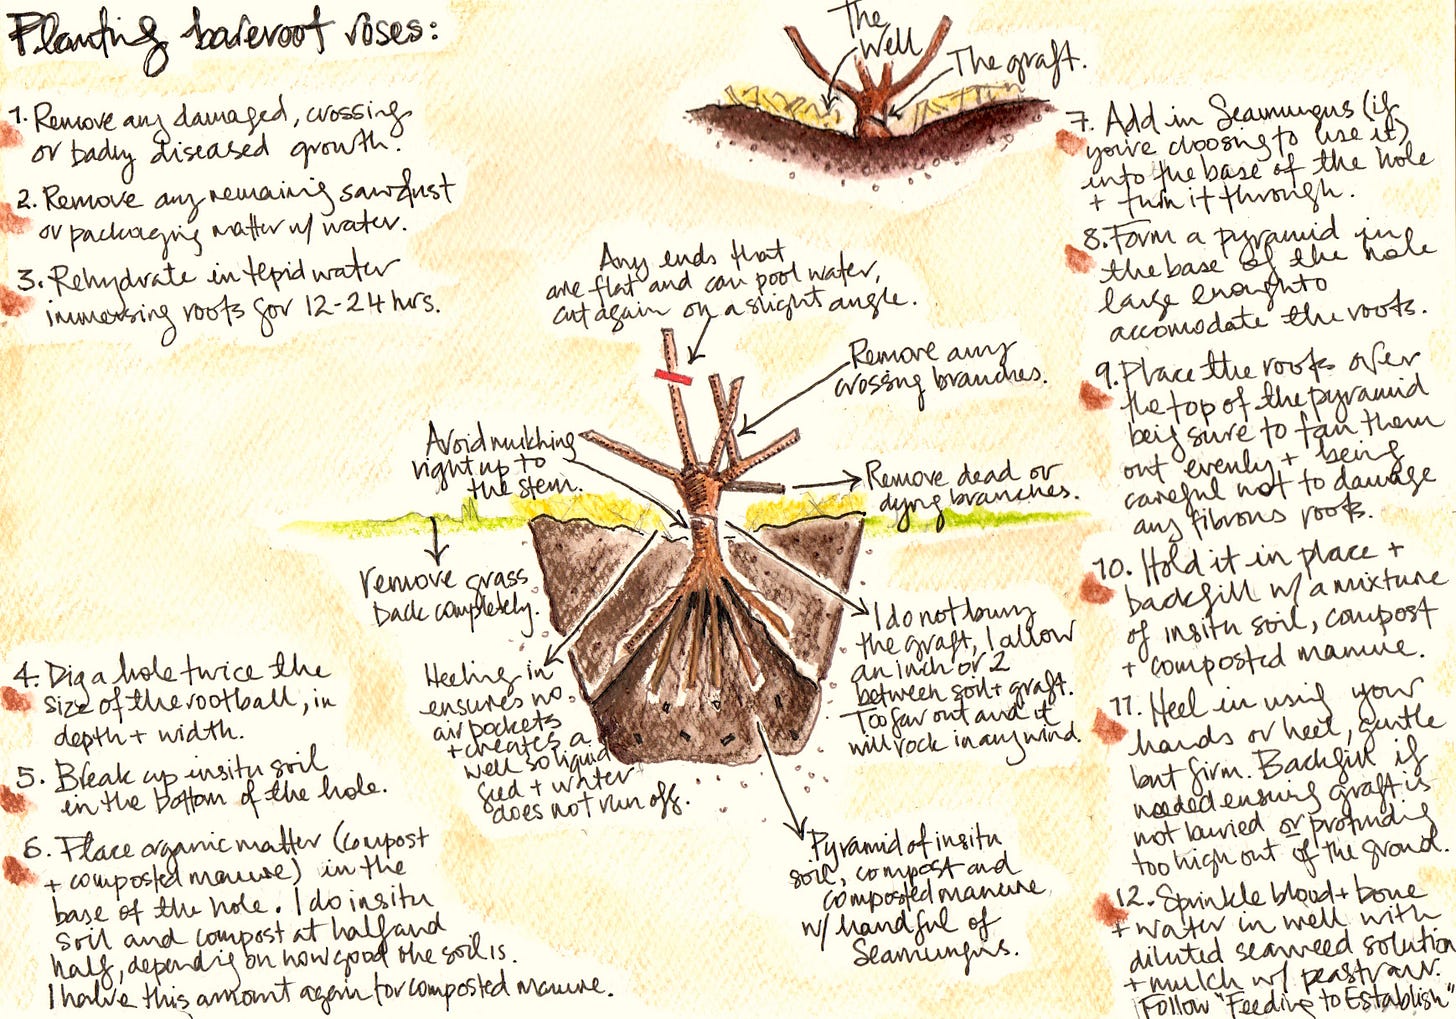 Planting bareroot roses:
1. Remove any damaged, crossing
or badly diseased growth.
2. Remove any remaining sawdust
or packaging matter w/ water.
3. Rehydrate in tepid water
immersing roots for 12-24 hrs.
The
Well
The graft.
Any ends that
are flat and can pool water,
cut again on a slight angle.
Remove any
crossing branches.
Avoid mulching
right up to
the stem.
Remove dead or
dying branches.
remove grass
back completely.
Heeling in
ensures no
air pockets
+ creates a
well so liquid
feed + water
does not run off.
I do not bury
the graft, I allow
an inch or 2
between soil + graft.
Too far out and it
will rock in any wind.
Pyramid of insitu
soil, compost and
composted manure
w/ handful of
Seamungus.
4. Dig a hole twice the
size of the rootball, in
depth + width.
5. Break up insitu soil
in the bottom of the hole.
6. Place organic matter (compost
+ composted manure) in the
base of the hole. I do insitu
soil and compost at half and
half, depending on how good the soil is.
I halve this amount again for composted manure.
7. Add in Seamungus (if
you're choosing to use it)
into the base of the hole
+ turn it through.
8. Form a pyramid in
the base of the hole
large enough to
accomodate the roots.
9. Place the roots over
the top of the pyramid
beig sure to fan them
out evenly + being
careful not to damage
any fibrous roots.
10. Hold it in place +
backfill w/ a mixture
of insitu soil, compost
+ composted manure.
11. Heel in using your
hands or heel, gentle
but firm. Backfill if
needed ensuring graft is
not buried or protruding
too high out of the ground.
12. Sprinkle blood + bone
+ water in well with
diluted seaweed solution
+ mulch w/ peastraw.
Follow "Feeding to Establish"